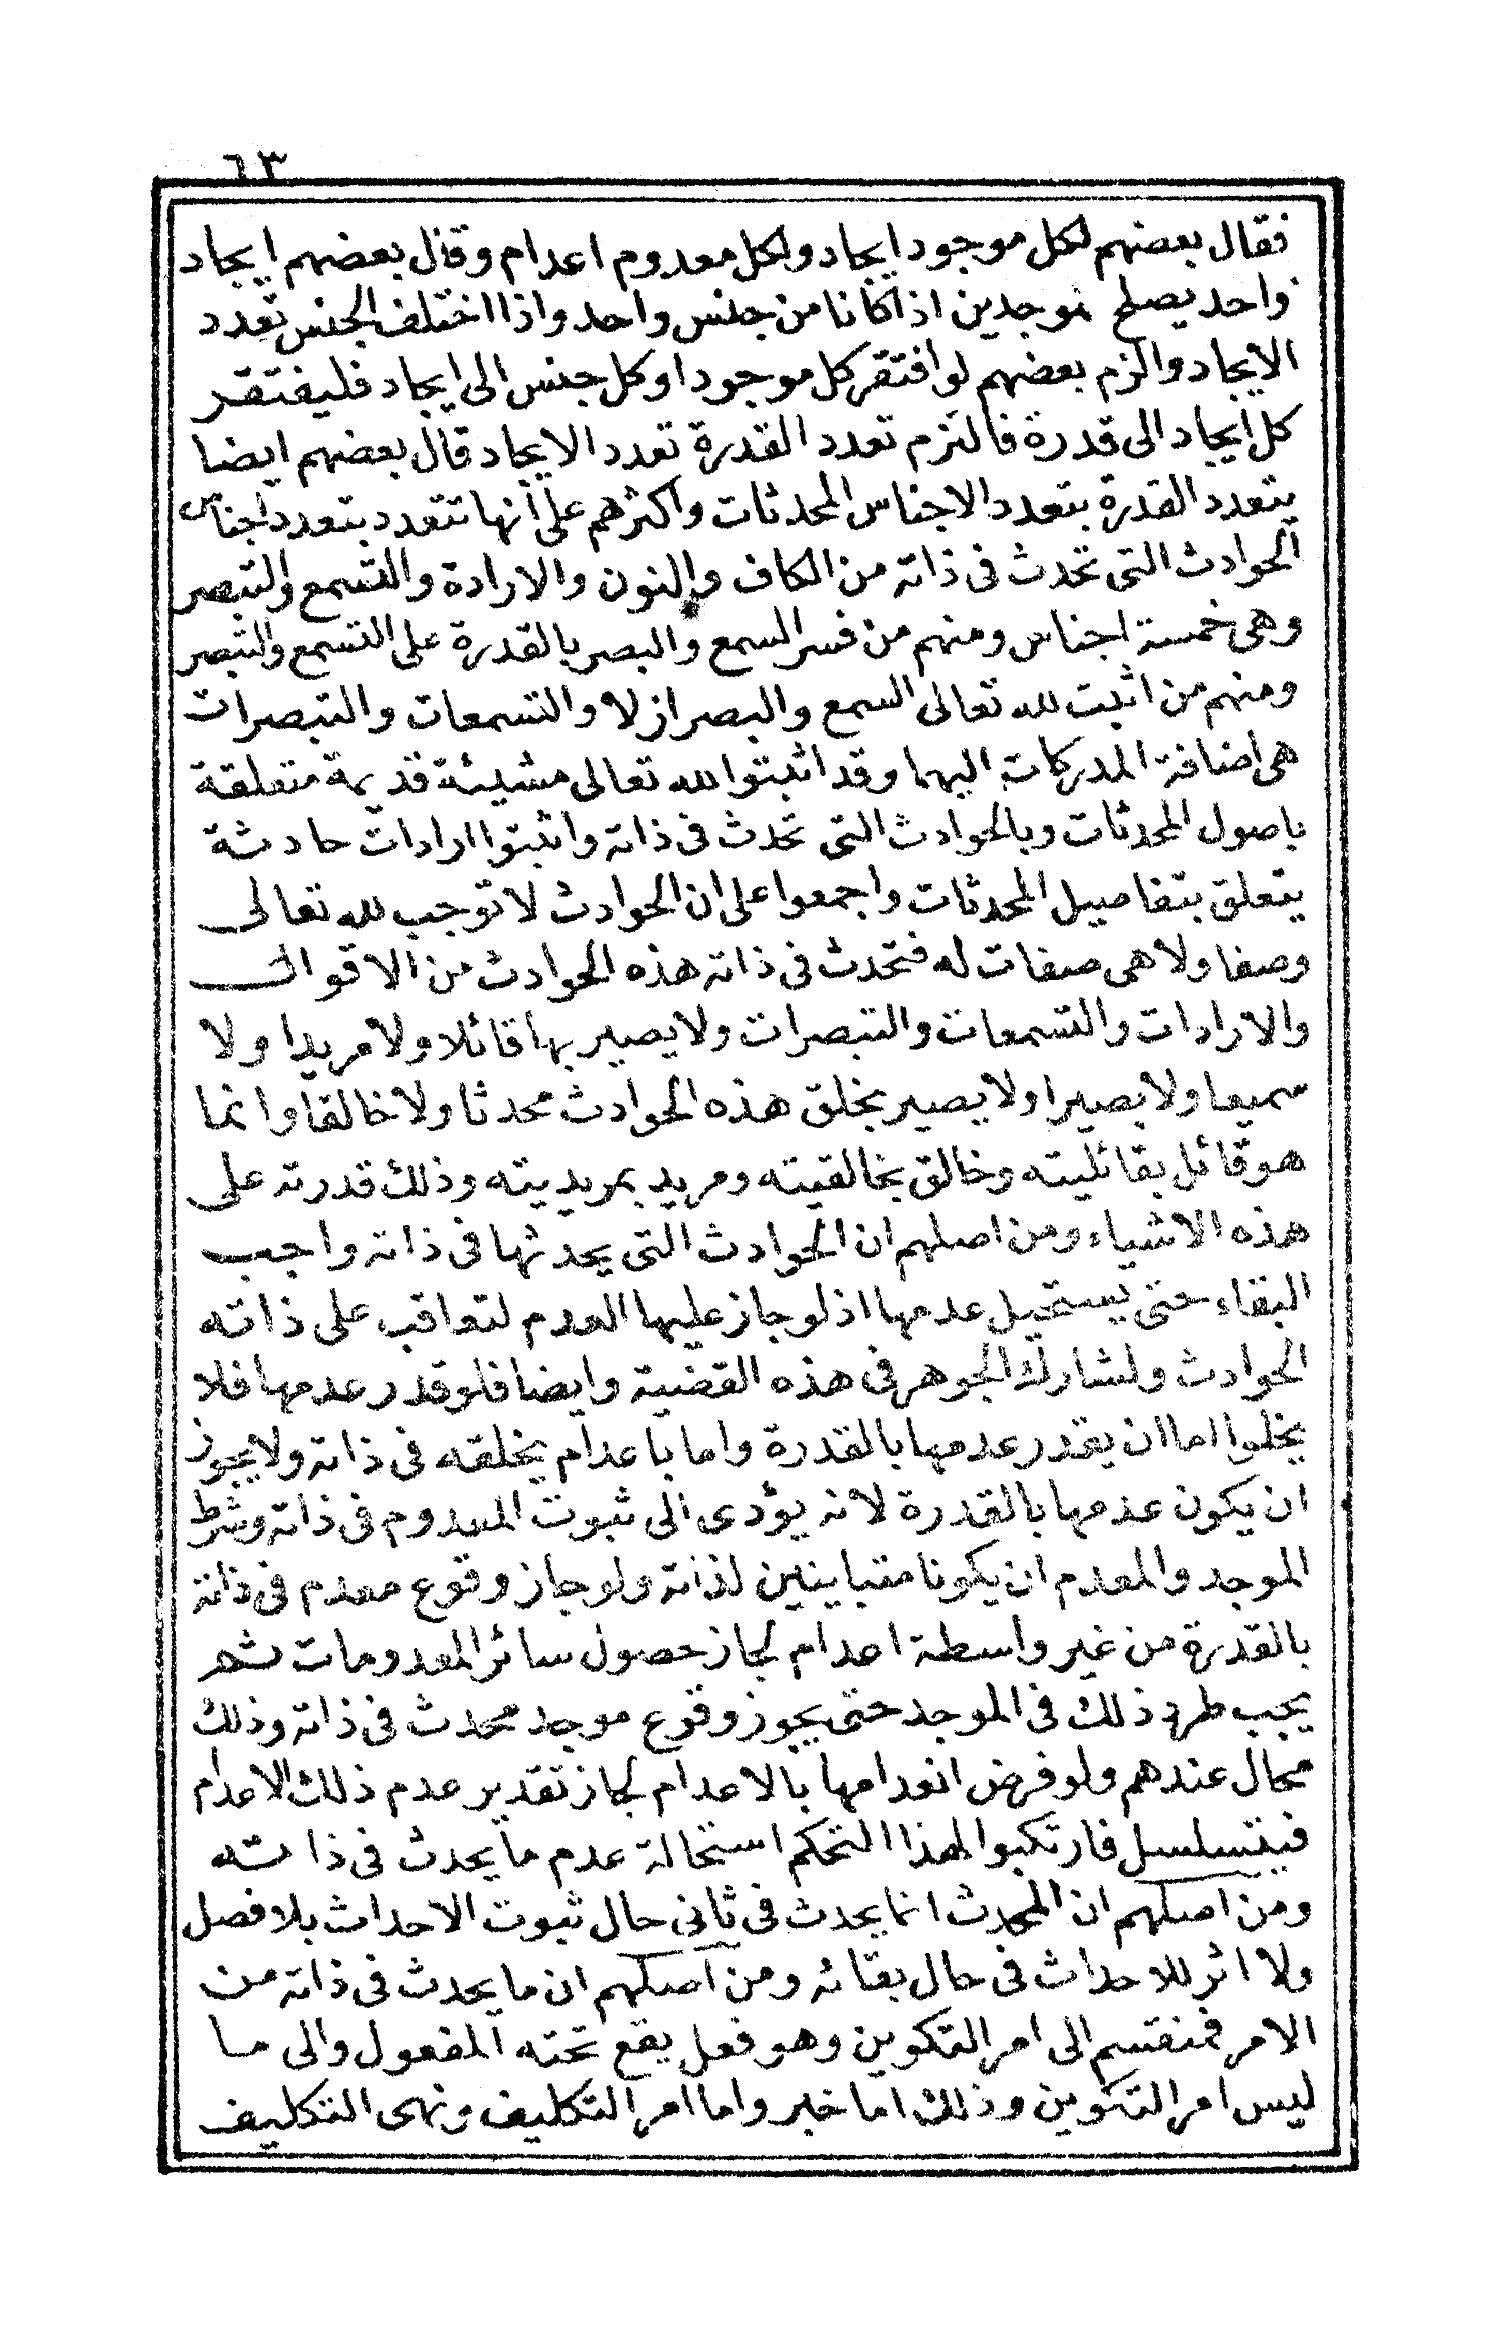 ٦٣
فقال بعضهم لكل موجود ايجاد ولكل معدوم اعدام وقال بعضهم ايجاد
واحد يصلح لموجدين اذا كانا من جنس واحد واذا اختلف الجنس تعدد
الايجاد والزم بعضهم لو افتقر كل موجود او كل جنس الى ايجاد فليفتقر
كل ايجاد الى قدرة فالتزم تعدد القدرة تعدد الايجاد قال بعضهم ايضا
يتعدد القدرة بتعدد الاجناس المحدثات واكثرهم على انها تتعدد بتعدد اجناس
الحوادث التى تحدث فى ذاته من الكاف والنون والارادة والتسمع والتبصر
وهى خمسة اجناس ومنهم من فسر السمع والبصر بالقدرة على التسمع والتبصر
ومنهم من اثبت لله تعالى السمع والبصر ازلا والتسمعات والتبصرات
هى اضافة المدركات اليهما وقد اثبتوا لله تعالى مشيئة قديمة متعلقة
باصول المحدثات وبالحوادث التى تحدث فى ذاته واثبتوا ارادات حادثة
يتعلق بتفاصيل المحدثات واجمعوا على ان الحوادث لا توجب لله تعالى
وصفا ولا هى صفات له فتحدث فى ذاته هذه الحوادث من الاقوال
والارادات والتسمعات والتبصرات ولا يصير بها قائلا ولا مريدا ولا
سميعا ولا بصيرا ولا يصير بخلق هذه الحوادث محدثا ولا خالقا وانما
هو قائل بقائليته وخالق بخالقيته ومريد بمريديته وذلك قدرته على
هذه الاشياء ومن اصلهم ان الحوادث التى يحدثها فى ذاته واجب
البقاء حتى يستحيل عدمها اذ لو جاز عليها العدم لتعاقب على ذاته
الحوادث ولشارك الجوهر فى هذه القضية وايضا فلو قدر عدمها فلا
يخلوا اما ان يقدر عدمها بالقدرة واما باعدام يخلقه فى ذاته ولا يجوز
ان يكون عدمها بالقدرة لانه يؤدى الى ثبوت المعدوم فى ذاته وشرط
الموجد والمعدم ان يكونا متباينين لذاته ولو جاز وقوع معدم فى ذاته
بالقدرة من غير واسطة اعدام لجاز حصول سائر المعدومات ثم
يجب طرد ذلك فى الموجد حتى يجوز وقوع موجد محدث فى ذاته وذلك
محال عندهم ولو فرض انعدامها بالاعدام لجاز تقدير عدم ذلك الاعدام
فيتسلسل فارتكبوا لهذا التحكم استحالة عدم ما يحدث فى ذاته
ومن اصلهم ان المحدث انما يحدث فى ثانى حال ثبوت الاحداث بلا فصل
ولا اثر للاحداث فى حال بقائه ومن اصلهم ان ما يحدث فى ذاته من
الامر فمنقسم الى امر التكوين وهو فعل يقع تحته المفعول والى ما
ليس امر التكوين وذلك اما خبر واما امر التكليف ونهى التكليف